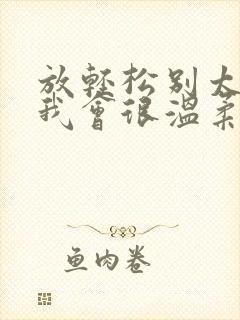 放轻松别太
我会很温柔
鱼肉卷